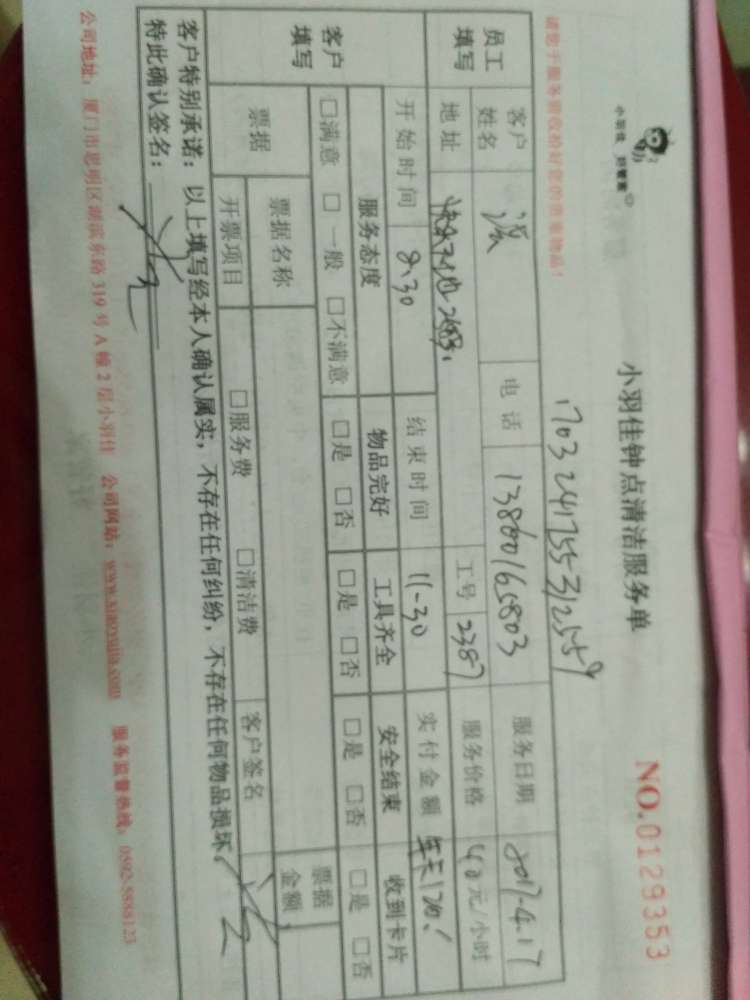 小羽佳 好管家
小羽佳钟点清洁服务单
NO.0129353
17032417553125559
请您于服务前收拾好您的贵重物品!
员工填写
客户姓名 电话 13860165803 服务日期 2017-4.17
地址 工号 2387 服务价格 40元/小时
开始时间 8.30 结束时间 11-30 实付金额 120.
客户填写
服务态度 物品完好 工具齐全 安全结束 收到卡片
□满意 □一般 □不满意 □是 □否 □是 □否 □是 □否 □是 □否
票据 票据名称 票据金额
开票项目 □服务费 □清洁费 客户签名
客户特别承诺:以上填写经本人确认属实,不存在任何纠纷,不存在任何物品损坏。
特此确认签名:
公司地址:厦门市思明区湖滨东路319号A幢2层小羽佳 公司网站:www.xiaoyujia.com 服务监督热线:0592-5888123